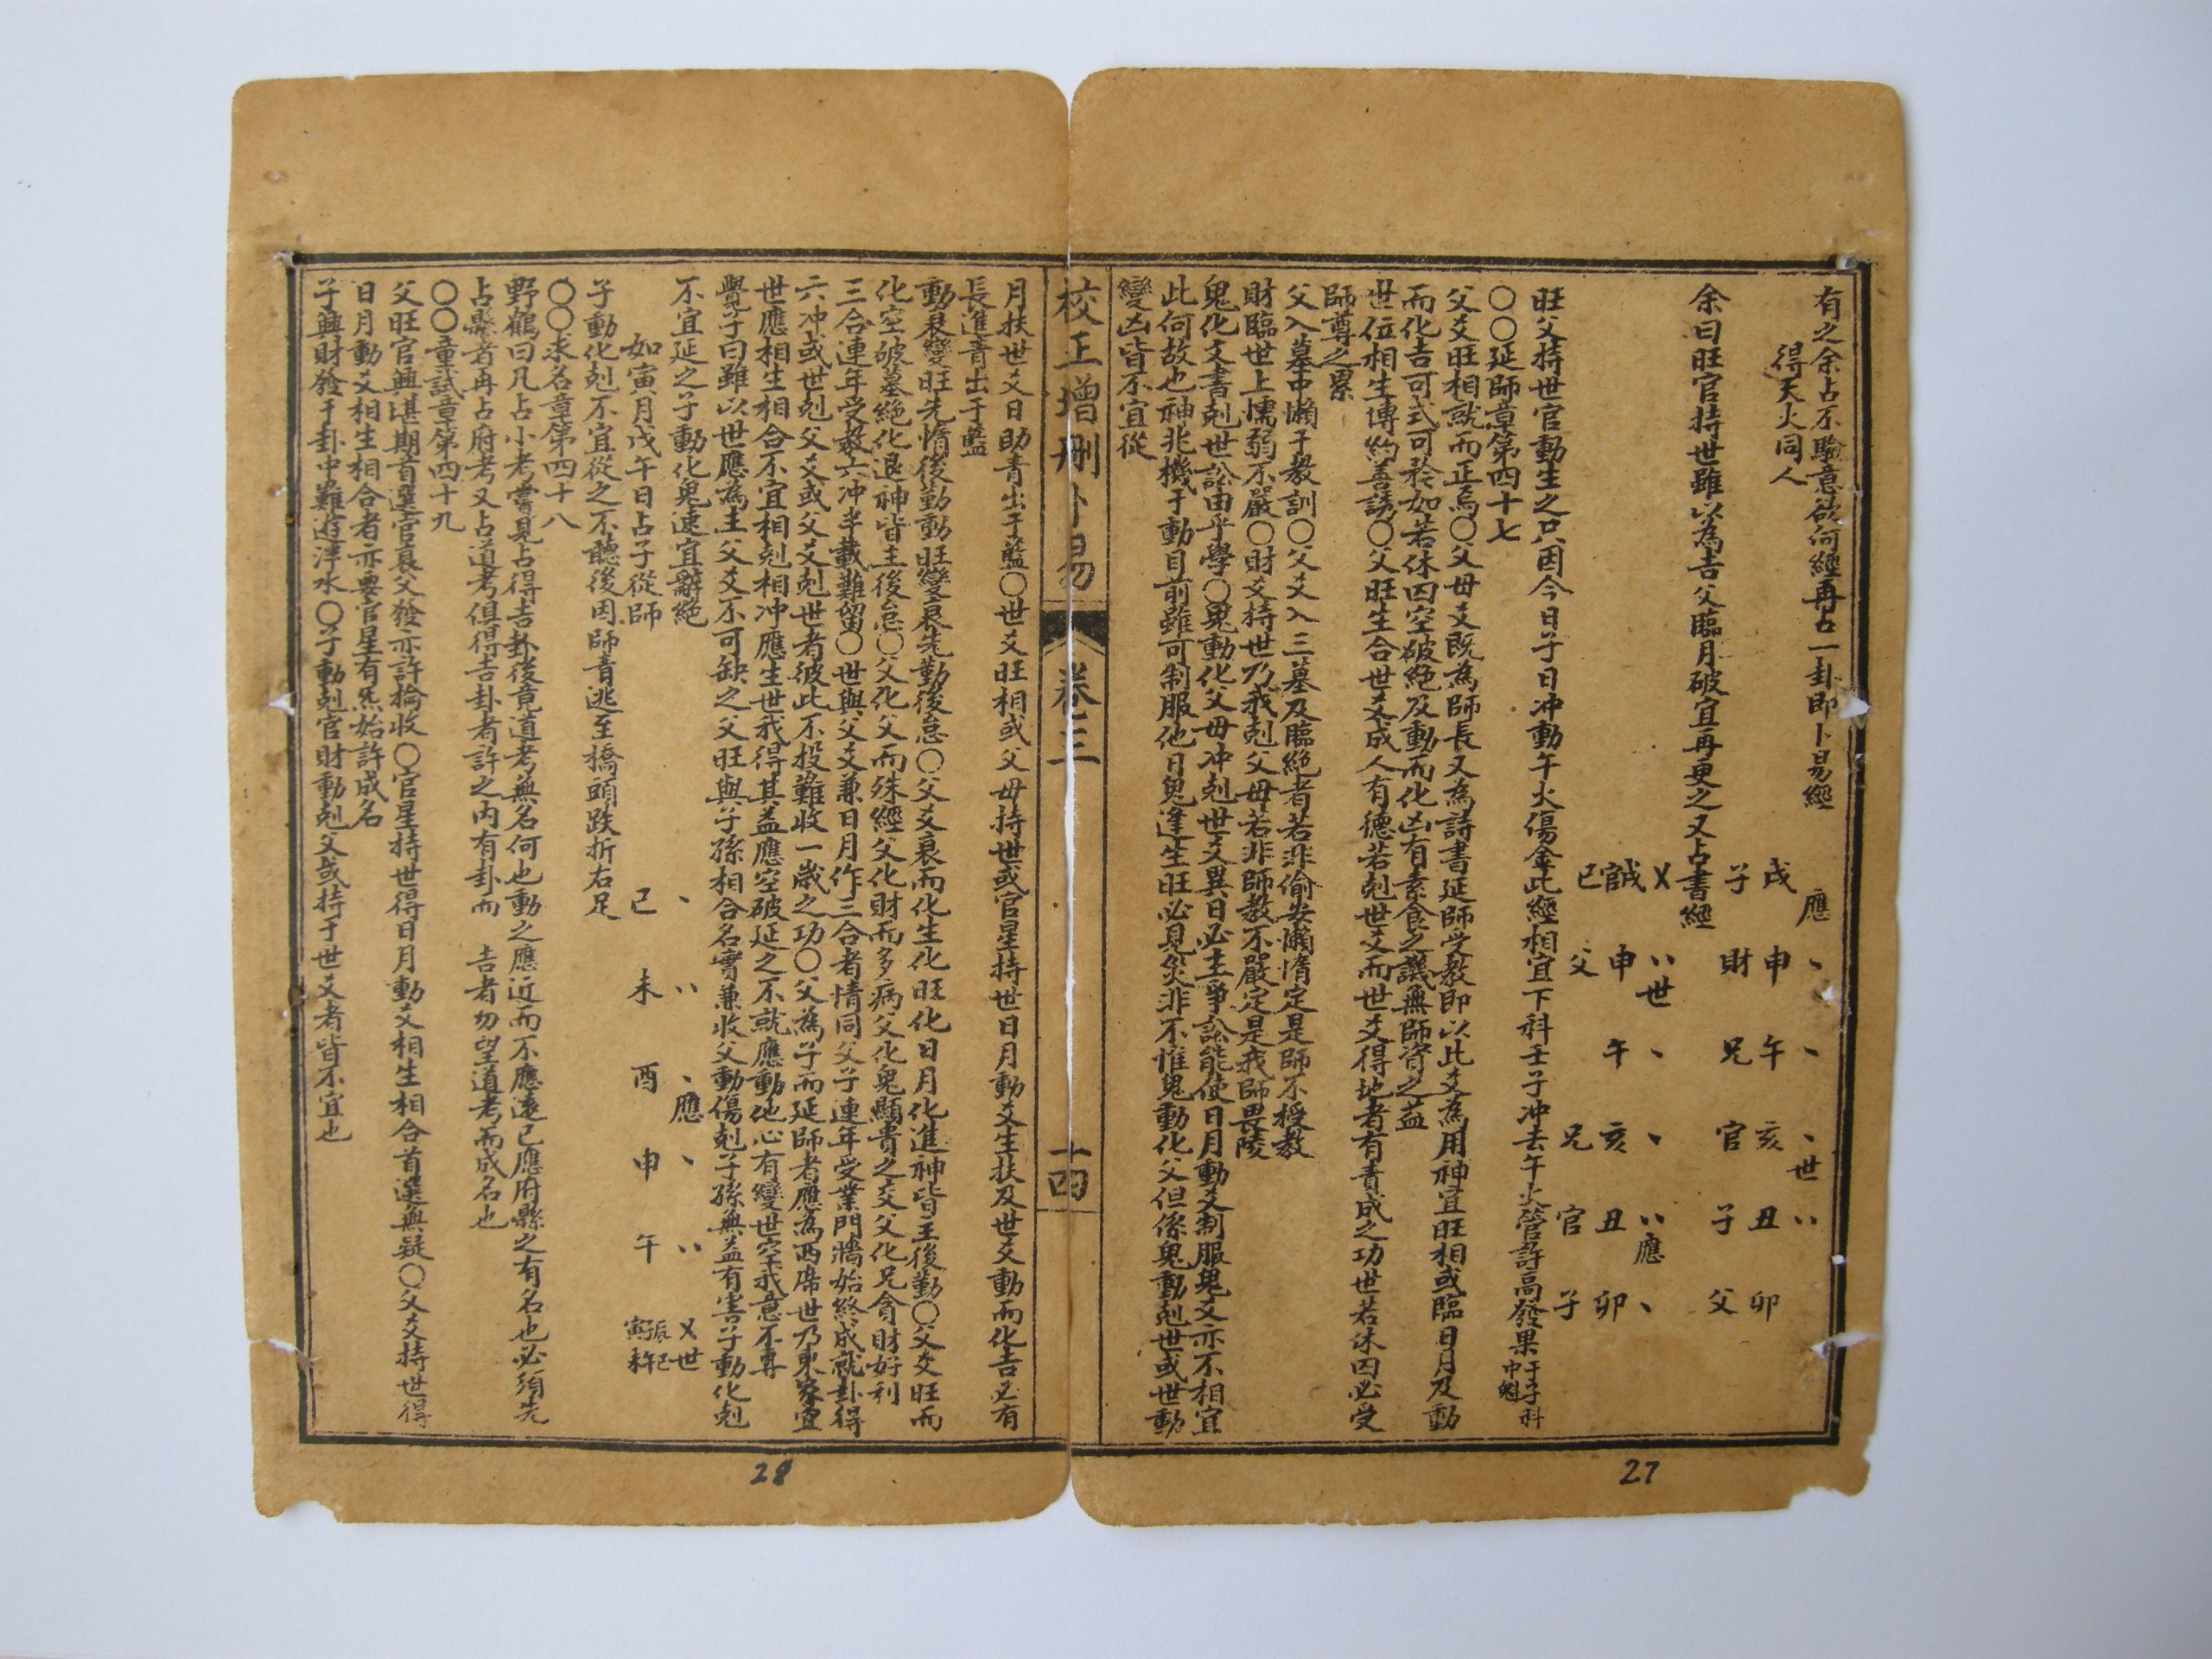 有之余占不驗意欲何經再占一卦即卜易經
得天火同人
應、、、世、、、
戌申午亥丑卯
子財兄官子父
余曰旺官持世雖以為吉父臨月破宜再更之又占書經
乂、、世、、、、應、
戌申午亥丑卯
官父兄官子
巳
旺父持世官動生之只因今日子日冲動午火傷金此經相宜下科壬子冲去午火管許高發果于子科中魁
〇〇延師章第四十七
父爻旺相就而正焉〇父母爻既為師長又為詩書延師受教即以此爻為用神宜旺相或臨日月及動
而化吉可式可矜如若休囚空破絕及動而化凶有素食之譏無師資之益
世位相生博約善誘〇父旺生合世爻成人有德若剋世爻而世爻得地者有責成之功世若休囚必受
師尊之累
父入墓中懶于教訓〇父爻入三墓及臨絕者若非偷安懶惰定是師不授教
財臨世上懦弱不嚴〇財爻持世乃我剋父母若非師教不嚴定是我師畏陵
鬼化文書剋世訟由乎學〇鬼動化父母冲剋世爻異日必主爭訟能使日月動爻制服鬼爻亦不相宜
此何故也神兆機于動目前雖可制服他日鬼逢生旺必見災非不惟鬼動化父但係鬼動剋世或世動
變凶皆不宜從
校正增刪卜易
卷三
十四
月扶世爻日助青出于藍〇世爻旺相或父母持世或官星持世日月動爻生扶及世爻動而化吉必有
長進青出于藍
動衰變旺先惰後勤動旺變衰先勤後怠〇父爻衰而化生化旺化日月化進神皆主後勤〇父爻旺而
化空破墓絕化退神皆主後怠〇父化父而殊經父化財而多病父化鬼顯貴之交父化兄貪財好利
三合連年受教六冲半載難留〇世與父爻兼日月作三合者情同父子連年受業門牆始終成就卦得
六冲或世剋父爻或父爻剋世者彼此不投難收一歲之功〇父為子而延師者應為西席世乃東家宜
世應相生相合不宜相剋相冲應生世我得其益應空破延之不就應動他心有變世空我意不專
覺子曰雖以世應為主父爻不可缺之父旺與子孫相合名實兼收父動傷剋子孫無益有害子動化剋
不宜延之子動化鬼速宜辭絕
如寅月戊午日占子從師
、、、、應、、、乂世
巳未酉申午辰
寅
子動化剋不宜從之不聽後因師責逃至橋頭跌折右足
〇〇求名章第四十八
野鶴曰凡占小考嘗見占得吉卦後竟道考無名何也動之應近而不應遠已應府縣之有名也必須先
占縣者再占府考又占道考俱得吉卦者許之內有卦而 吉者勿望道考而成名也
〇〇童試章第四十九
父旺官興堪期首選官衰父發亦許掄收〇官星持世得日月動爻相生相合首選無疑〇父爻持世得
日月動爻相生相合者亦要官星有炁始許成名
子興財發于卦中難遊泮水〇子動剋官財動剋父或持于世爻者皆不宜也
28
27